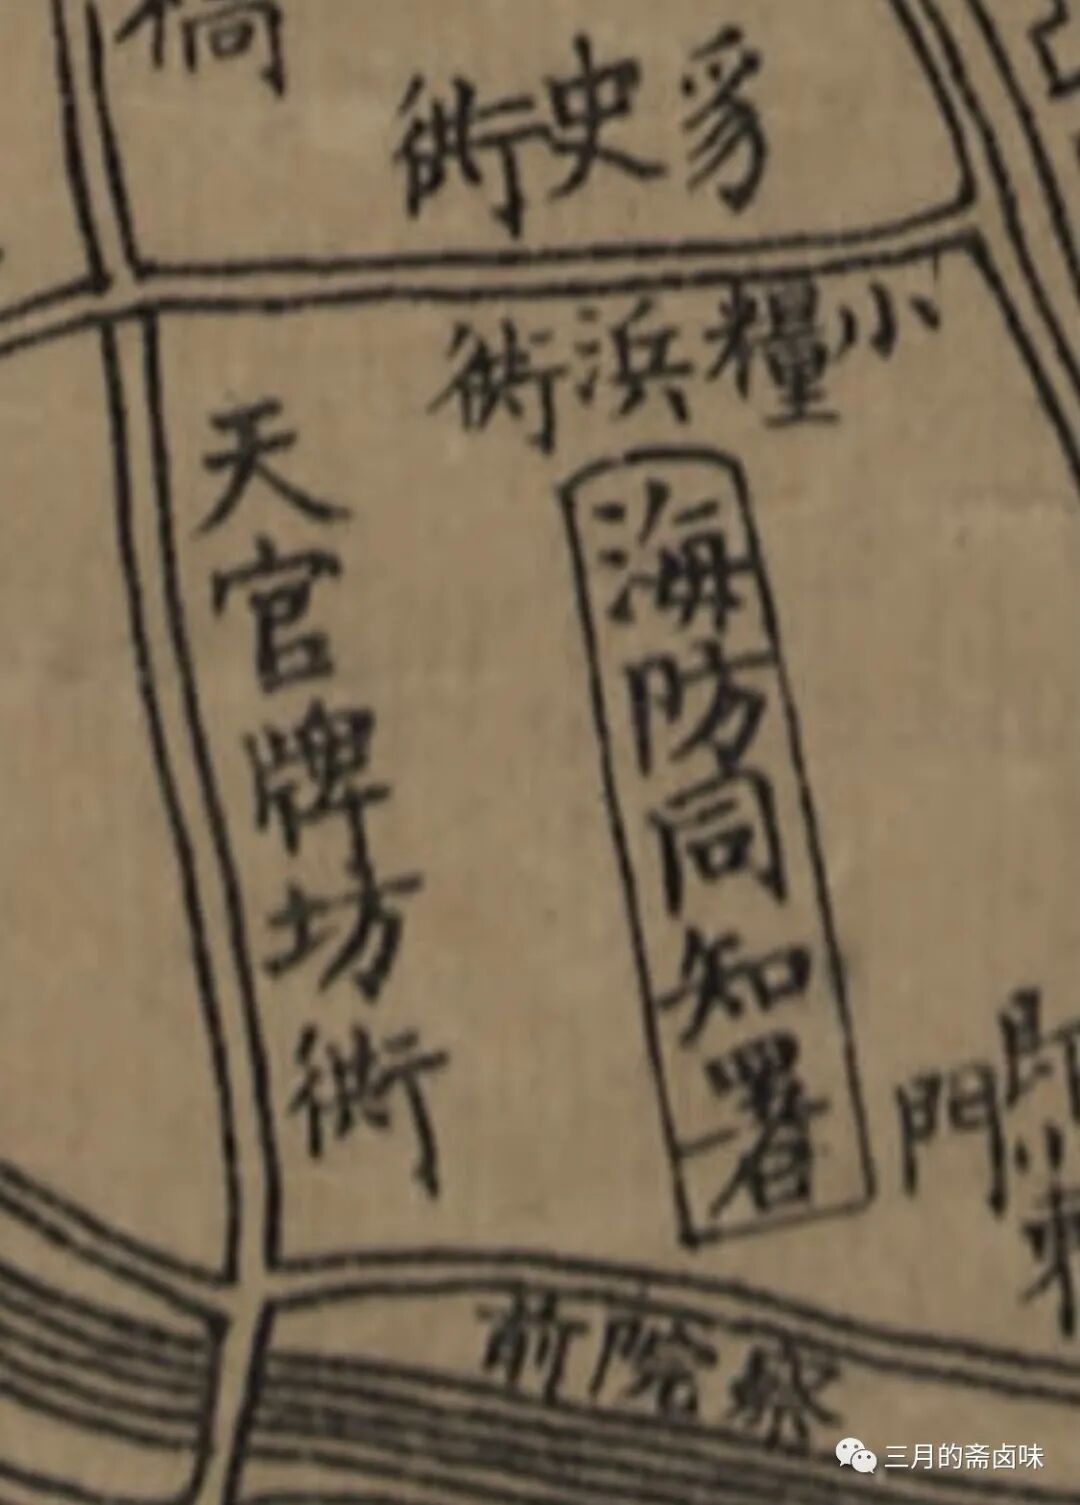 豸史衖
小糧浜衖
天官牌坊衖
海防同知署
門
察院前
三月的斋卤味